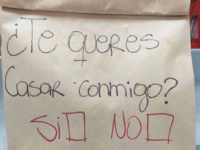 ¿Te queres
Casar conmigo?
SI☐ NO☐